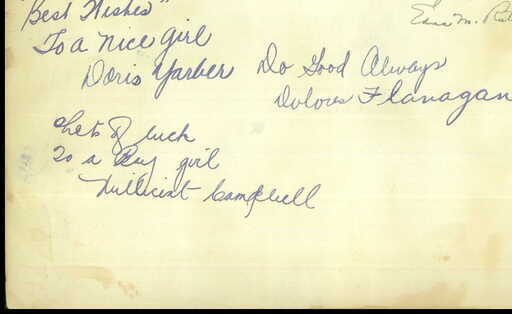 "Best Wishes"
To a nice girl
Doris Yarber
Do Good Always
Dolores Flanagan
Lets of luck
To a girl
Millicint Campbell
Edna M.